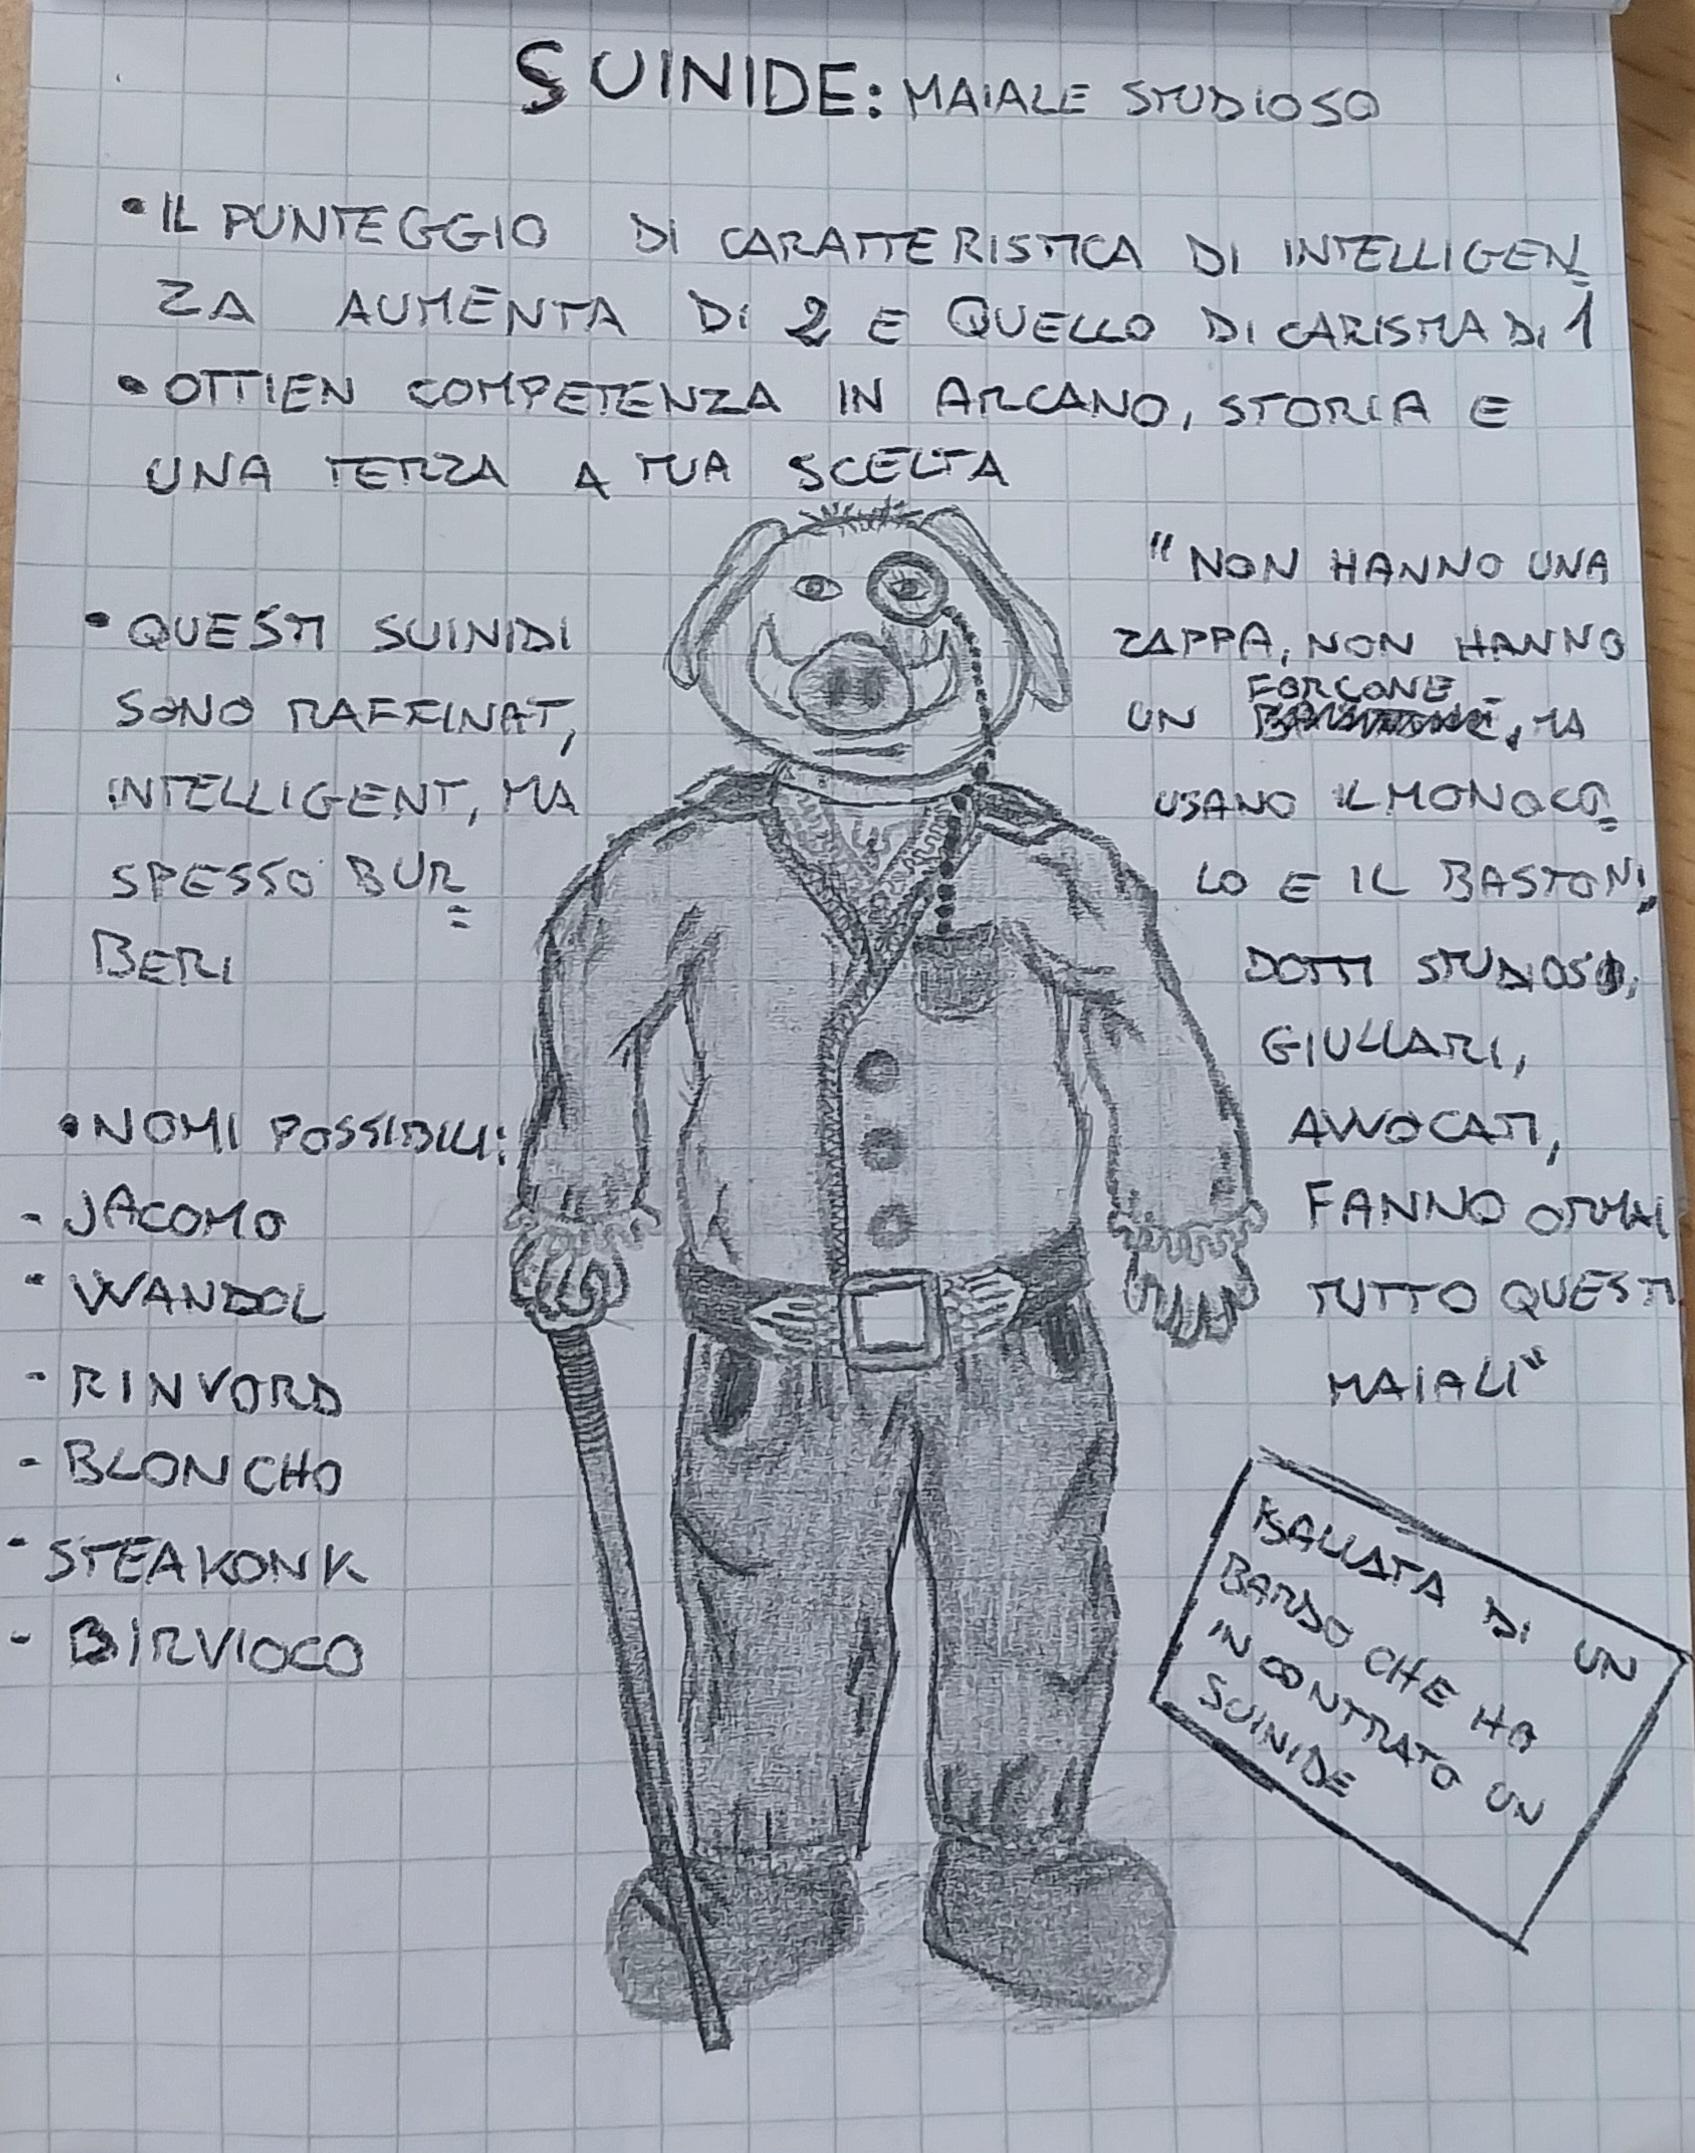 SUINIDE: MAIALE STUDIOSO
• IL PUNTEGGIO DI CARATTERISTICA DI INTELLIGEN
ZA AUMENTA DI 2 E QUELLO DI CARISMA DI 1
• OTTIEN COMPETENZA IN ARCANO, STORIA E
UNA TERZA A TUA SCELTA
• QUESTI SUINIDI
SONO RAFFINATI,
INTELLIGENTI, MA
SPESSO BUR
BERI
• NOMI POSSIBILI:
- JACOMO
- WANDOL
- RINVORD
- BLONCHO
- STEAKONK
- BIRVIOCO
"NON HANNO UNA
ZAPPA, NON HANNO
UN FORCONE, MA
USANO IL MONOCO
LO E IL BASTONE,
DOTTI STUDIOSI,
GIULLARI,
AVVOCATI,
FANNO ORMAI
TUTTO QUESTI
MAIALI"
BALLATA DI UN
BARDO CHE HA
INCONTRATO UN
SUINIDE